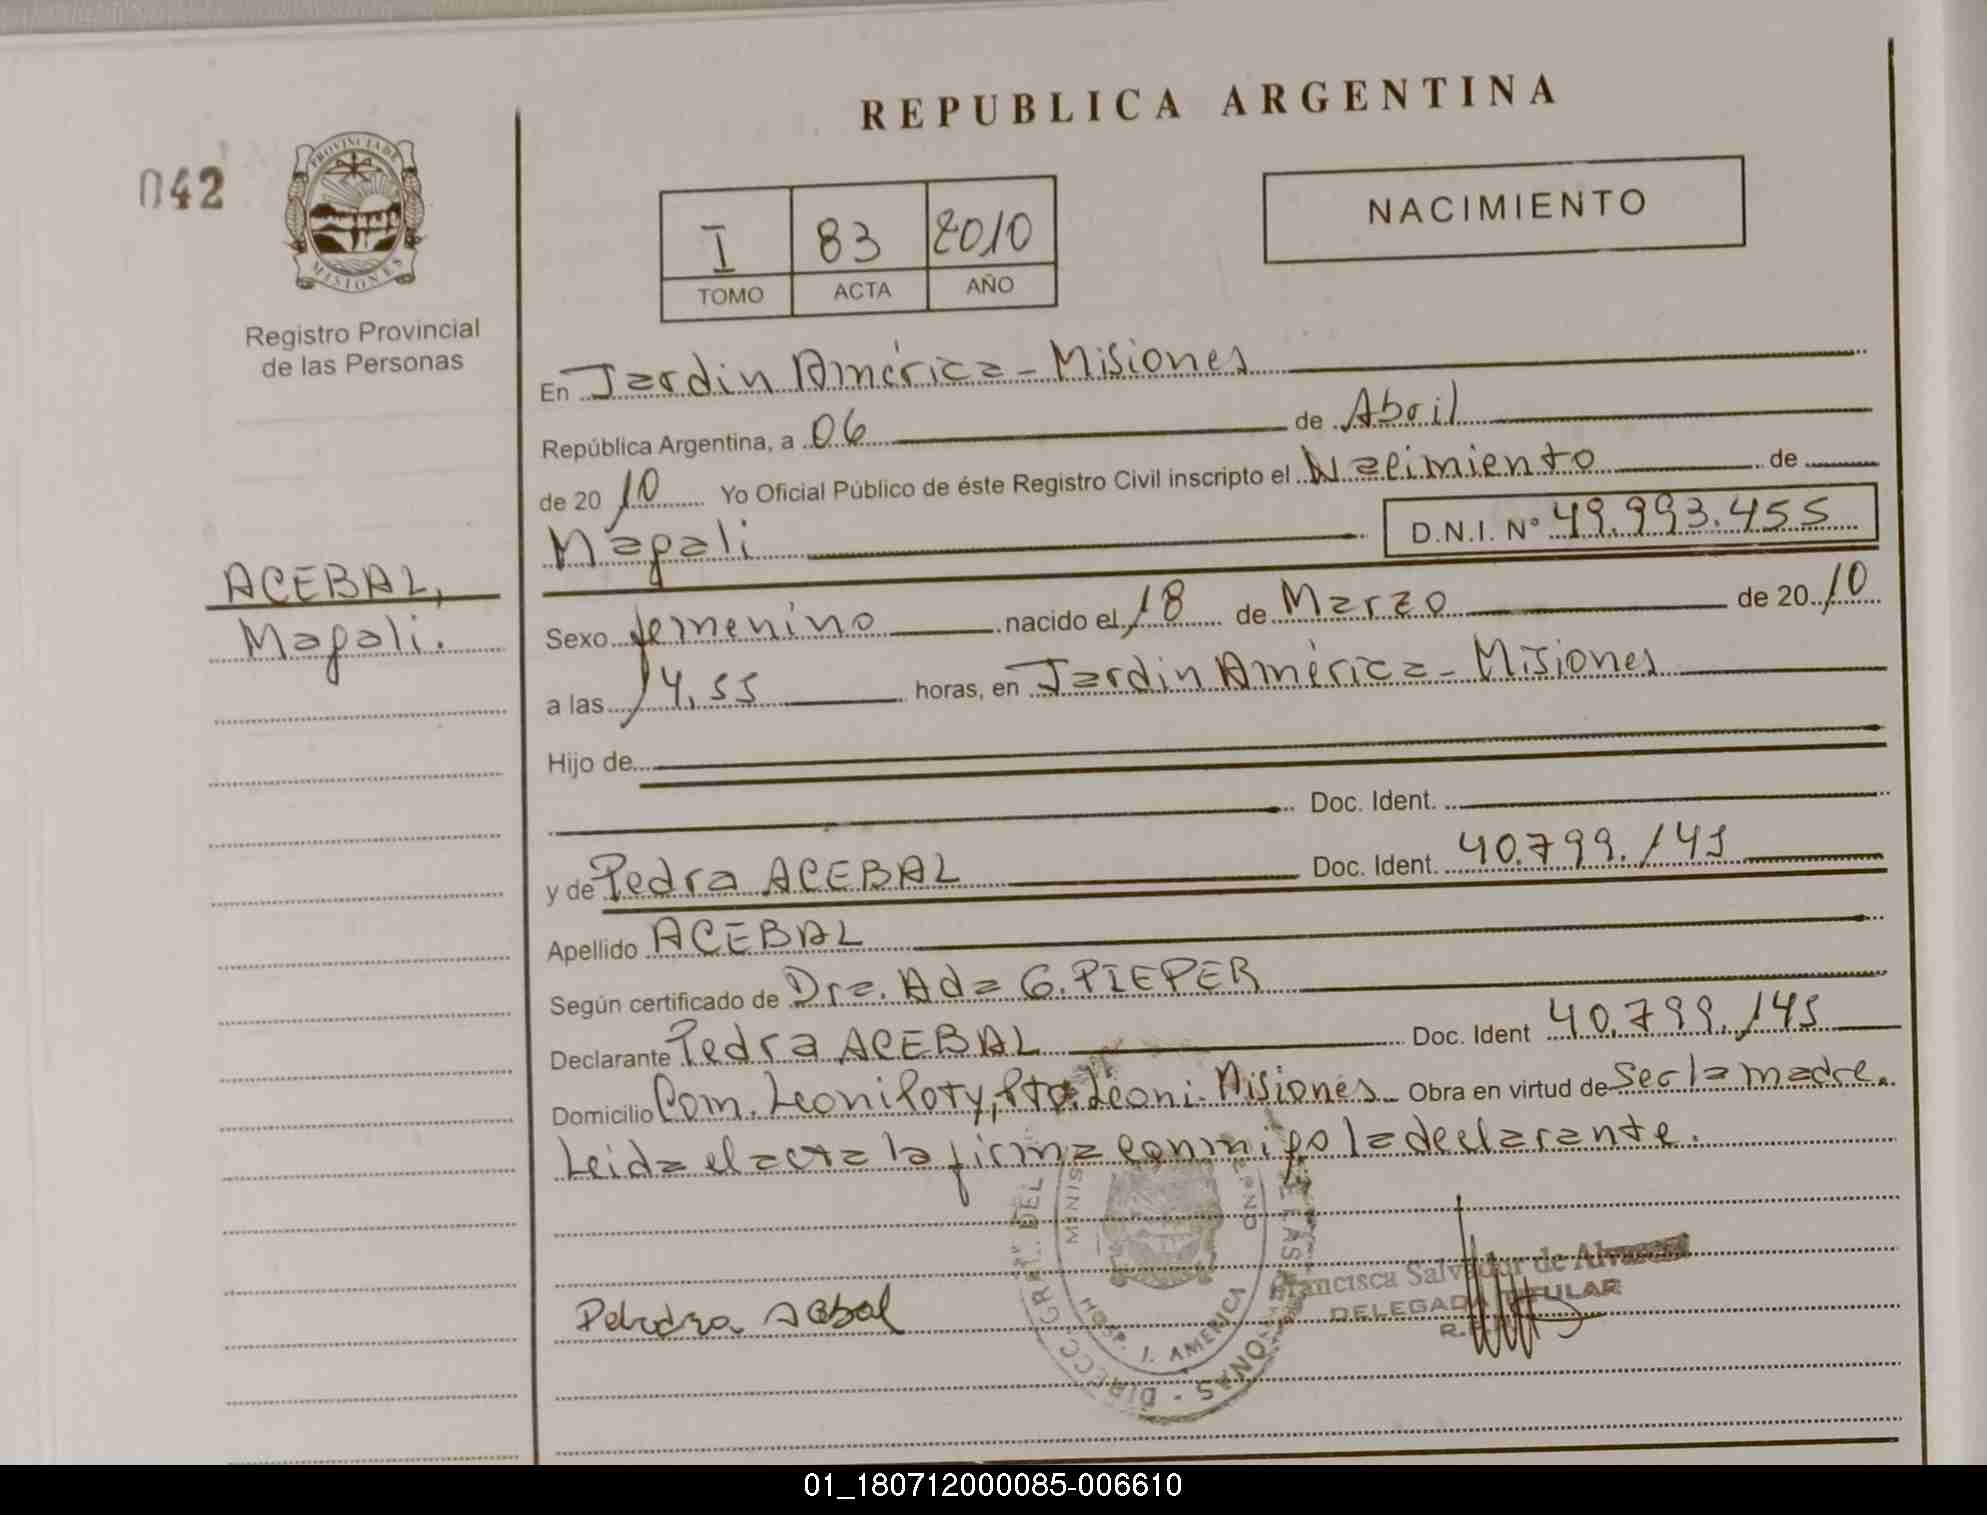 REPUBLICA ARGENTINA
042
PROVINCIA DE
MISIONES
Registro Provincial
de las Personas
I 83 2010
TOMO ACTA AÑO
NACIMIENTO
En Jardin América - Misiones
República Argentina, a 06 de Abril
de 2010 Yo Oficial Público de éste Registro Civil inscripto el Nacimiento de
Magali D.N.I. Nº 49.993.455
ACEBAL,
Magali.
Sexo femenino nacido el 18 de Marzo de 2010
a las 14,55 horas, en Jardin América - Misiones
Hijo de
Doc. Ident.
y de Pedra ACEBAL Doc. Ident. 40.799.145
Apellido ACEBAL
Según certificado de Dra. Ada G. PIEPER
Declarante Pedra ACEBAL Doc. Ident 40.799.145
Domicilio Com. Leoni Poty, Pto. Leoni - Misiones - Obra en virtud de Ser la madre.
Leida el acta la firma conmigo la declarante.
Francisca Salvador de
DELEGADA TITULAR
HOSP. J. AMERICA
01_180712000085-006610